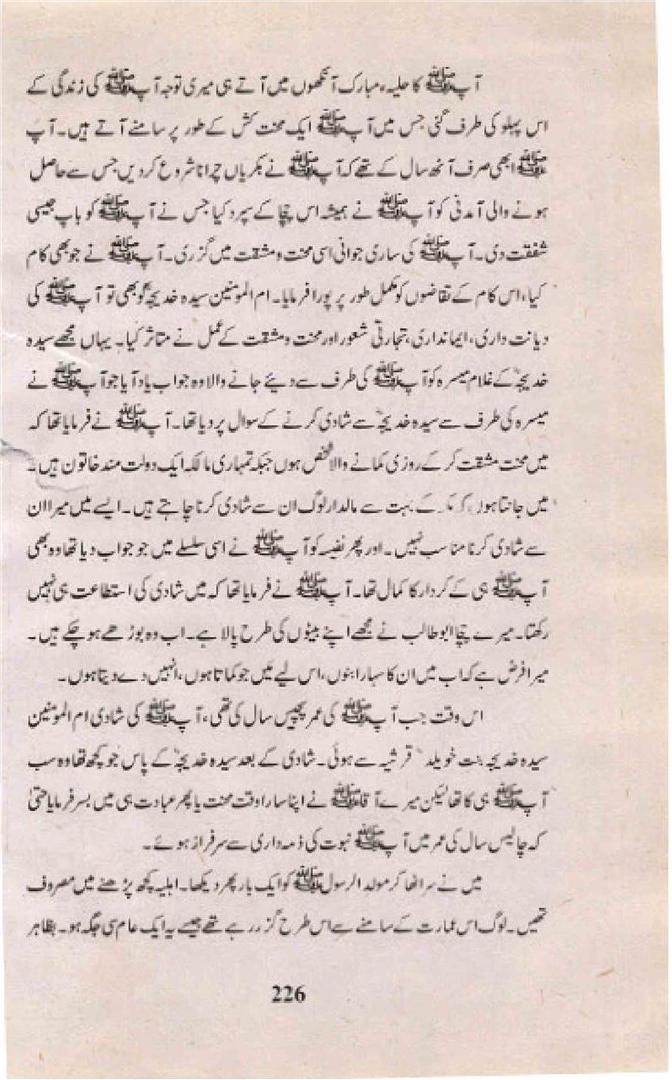 آپﷺ کا حلیہء مبارک آنکھوں میں آتے ہی میری توجہ آپﷺ کی زندگی کے
اس پہلو کی طرف گئی جس میں آپﷺ ایک محنت کش کے طور پر سامنے آتے ہیں۔ آپ
ﷺ ابھی صرف آٹھ سال کے تھے کہ آپﷺ نے بکریاں چرانا شروع کر دیں جس سے حاصل
ہونے والی آمدنی کو آپﷺ نے ہمیشہ اس چچا کے سپرد کیا جس نے آپﷺ کو باپ جیسی
شفقت دی۔ آپﷺ کی ساری جوانی اسی محنت و مشقت میں گزری۔ آپﷺ نے جو بھی کام
کیا، اس کام کے تقاضوں کو مکمل طور پر پورا فرمایا۔ ام المومنین سیدہ خدیجہؓ کو بھی تو آپﷺ کی
دیانت داری، ایمانداری، تجارتی شعور اور محنت و مشقت کے عمل نے متاثر کیا۔ یہاں مجھے سیدہ
خدیجہؓ کے غلام میسرہ کو آپﷺ کی طرف سے دیئے جانے والا وہ جواب یاد آیا جو آپﷺ نے
میسرہ کی طرف سے سیدہ خدیجہؓ سے شادی کرنے کے سوال پر دیا تھا۔ آپﷺ نے فرمایا تھا کہ
میں محنت مشقت کر کے روزی کمانے والا شخص ہوں جبکہ تمہاری مالکہ ایک دولت مند خاتون ہیں۔
میں جانتا ہوں کہ مکہ کے بہت سے مالدار لوگ ان سے شادی کرنا چاہتے ہیں۔ ایسے میں میرا ان
سے شادی کرنا مناسب نہیں۔ اور پھر نفیسہ کو آپﷺ نے اسی سلسلے میں جو جواب دیا تھا وہ بھی
آپﷺ ہی کے کردار کا کمال تھا۔ آپﷺ نے فرمایا تھا کہ میں شادی کی استطاعت ہی نہیں
رکھتا۔ میرے چچا ابوطالب نے مجھے اپنے بیٹوں کی طرح پالا ہے۔ اب وہ بوڑھے ہو چکے ہیں۔
میرا فرض ہے کہ اب میں ان کا سہارا بنوں، اس لیے میں جو کماتا ہوں، انہیں دے دیتا ہوں۔
اس وقت جب آپﷺ کی عمر پچیس سال کی تھی، آپﷺ کی شادی ام المومنین
سیدہ خدیجہ بنت خویلدؓ قرشیہ سے ہوئی۔ شادی کے بعد سیدہ خدیجہؓ کے پاس جو کچھ تھا وہ سب
آپﷺ ہی کا تھا لیکن میرے آقاﷺ نے اپنا سارا وقت محنت یا پھر عبادت ہی میں بسر فرمایا حتیٰ
کہ چالیس سال کی عمر میں آپﷺ نبوت کی ذمہ داری سے سرفراز ہوئے۔
میں نے سر اٹھا کر مولد الرسولﷺ کو ایک بار پھر دیکھا۔ اہلیہ کچھ پڑھنے میں مصروف
تھیں۔ لوگ اس عمارت کے سامنے سے اس طرح گزر رہے تھے جیسے یہ ایک عام سی جگہ ہو۔ بظاہر
226